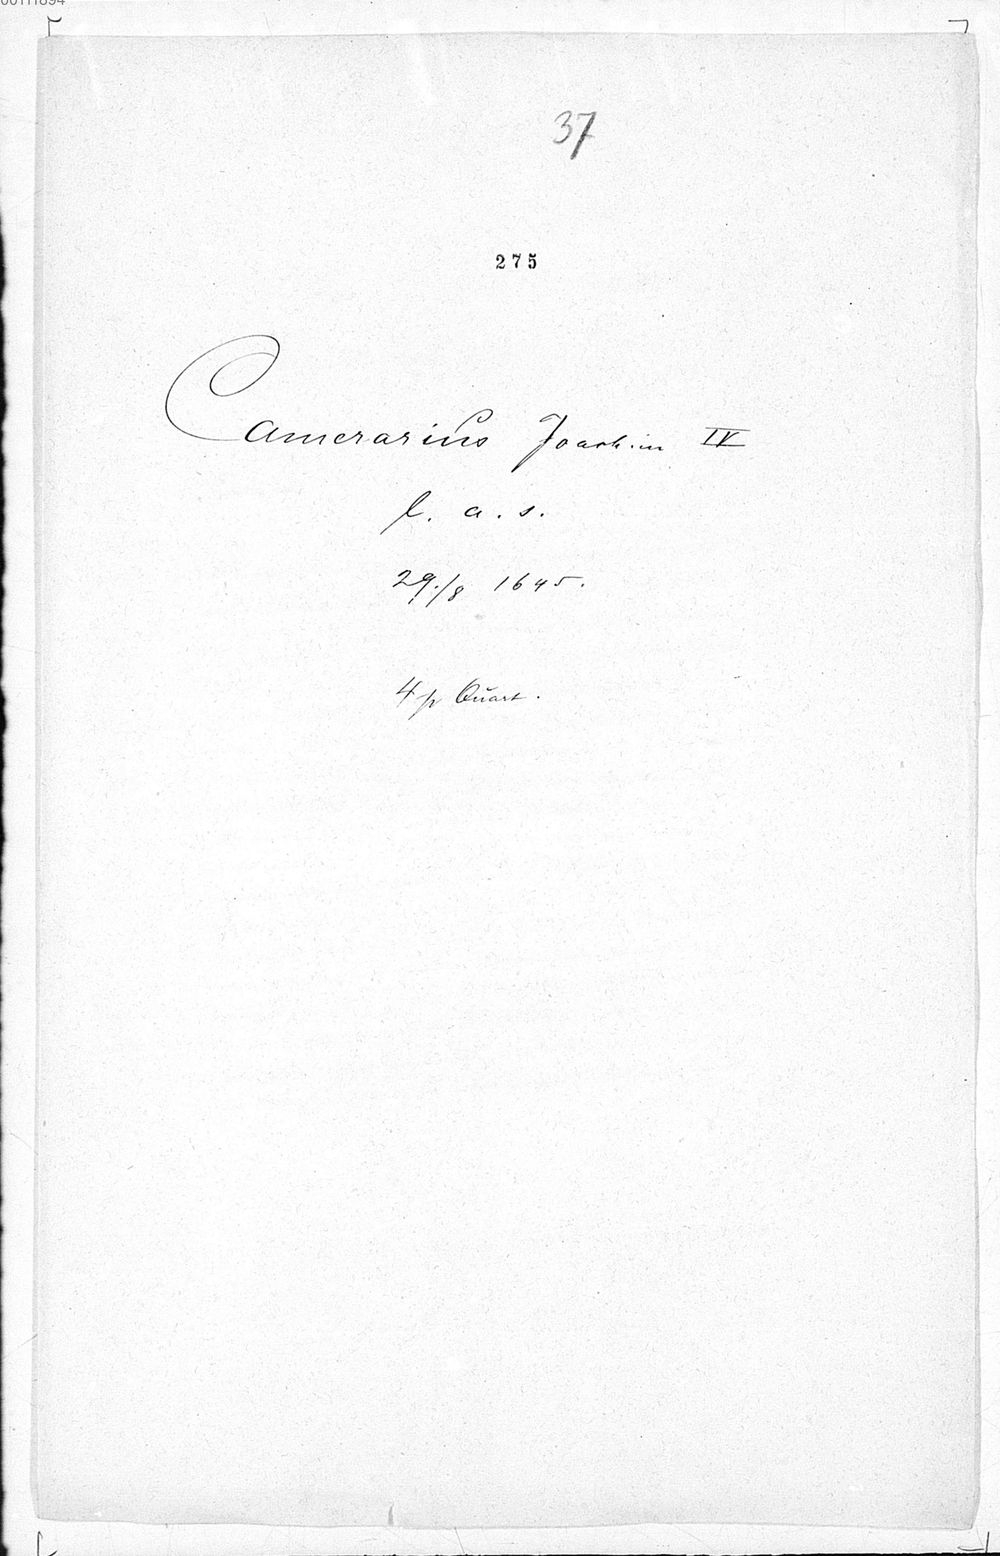 00111894
37
275
Camerarius Joachim IV
l. a. s.
29./8 1645.
4 p Quart.